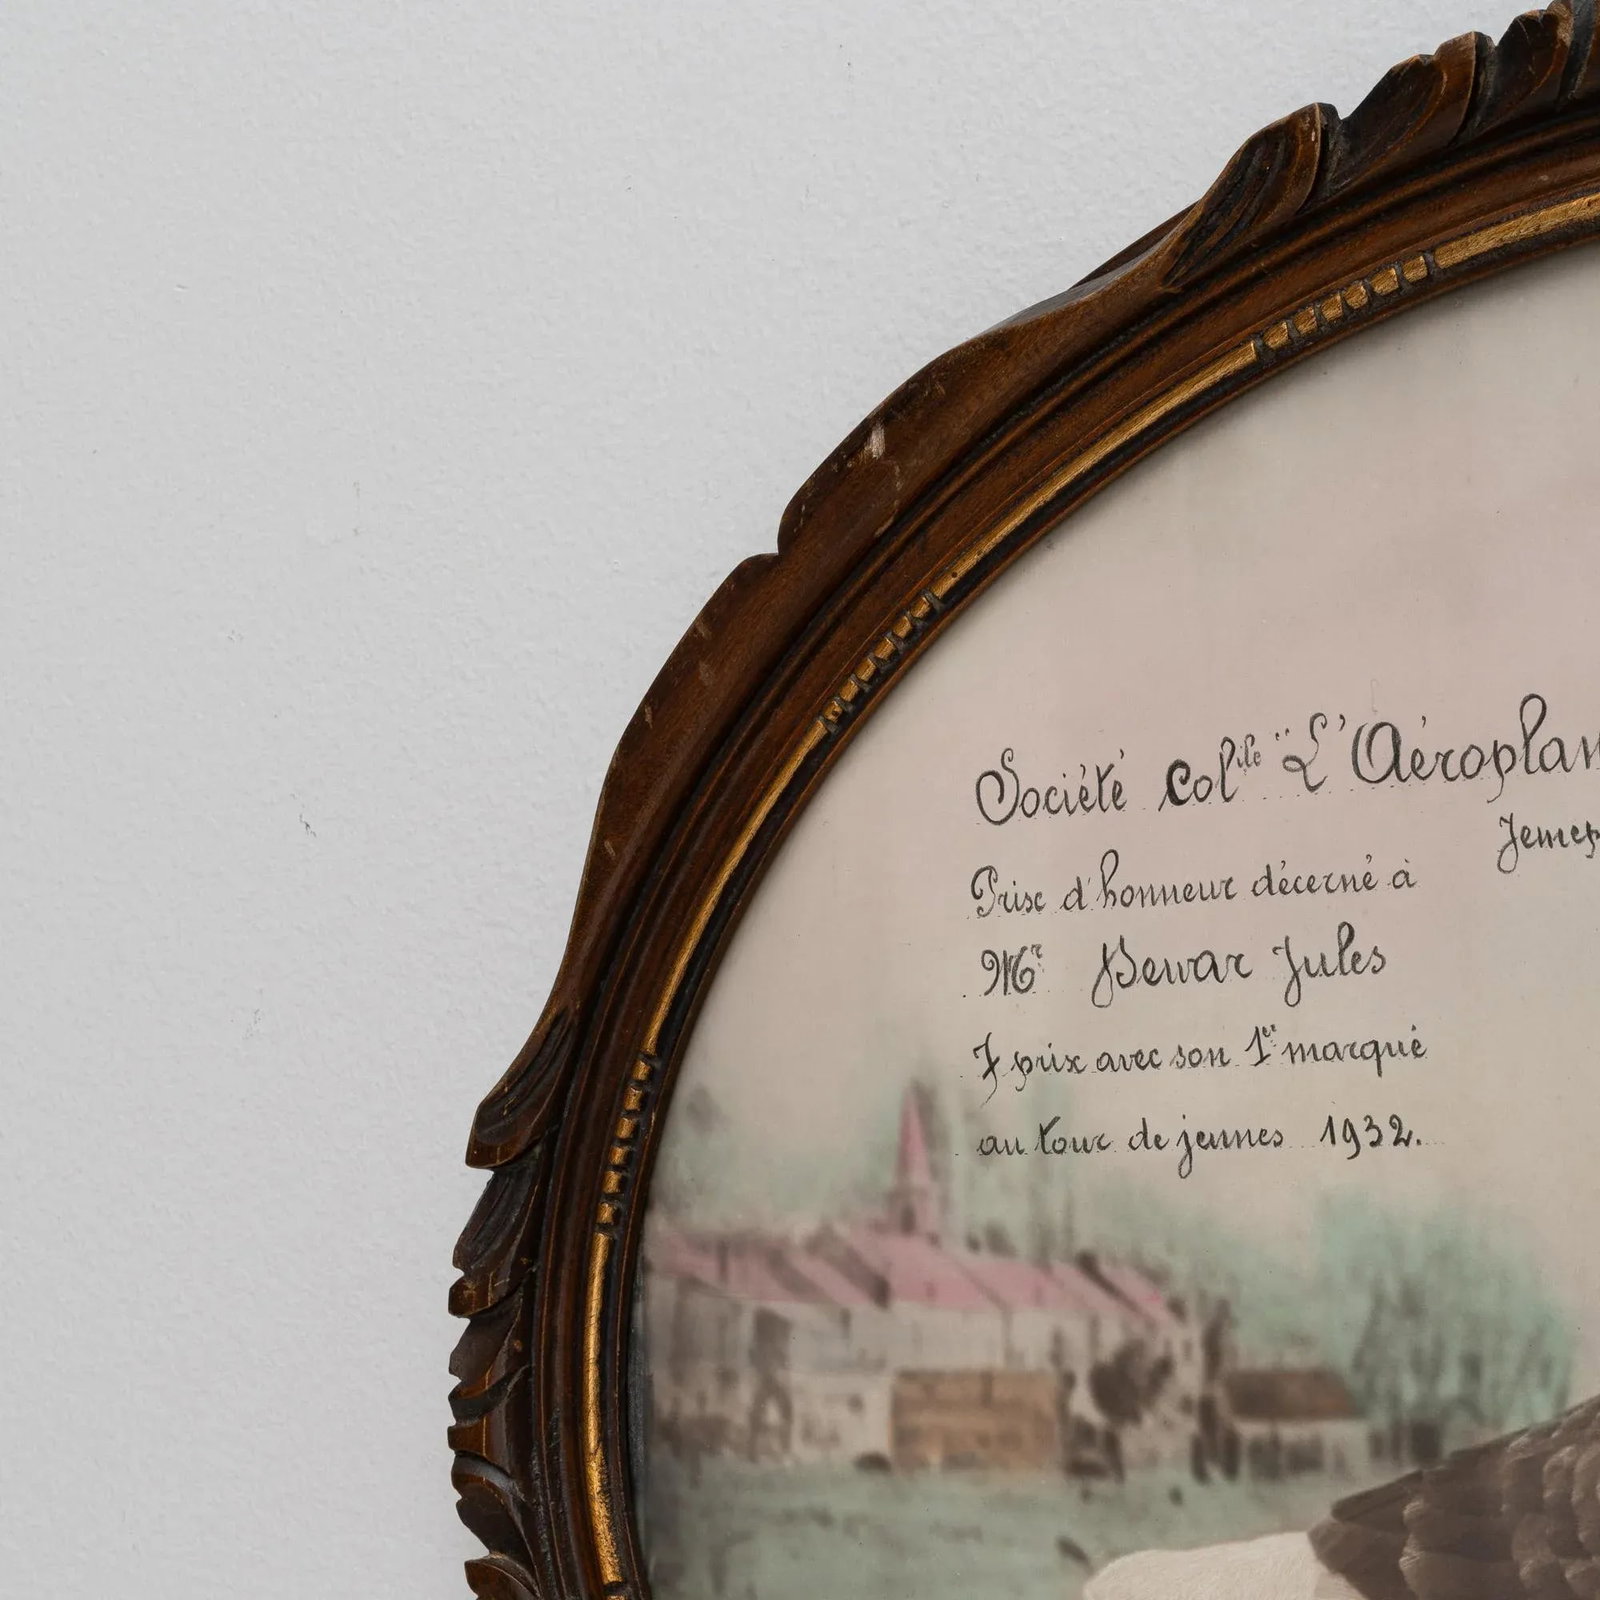 Société colile "L'Aéroplan
Jemep
Prix d'honneur décerné à
Mr Dewar Jules
7 prix avec son 1er marqué
au tour de jeunes 1932.